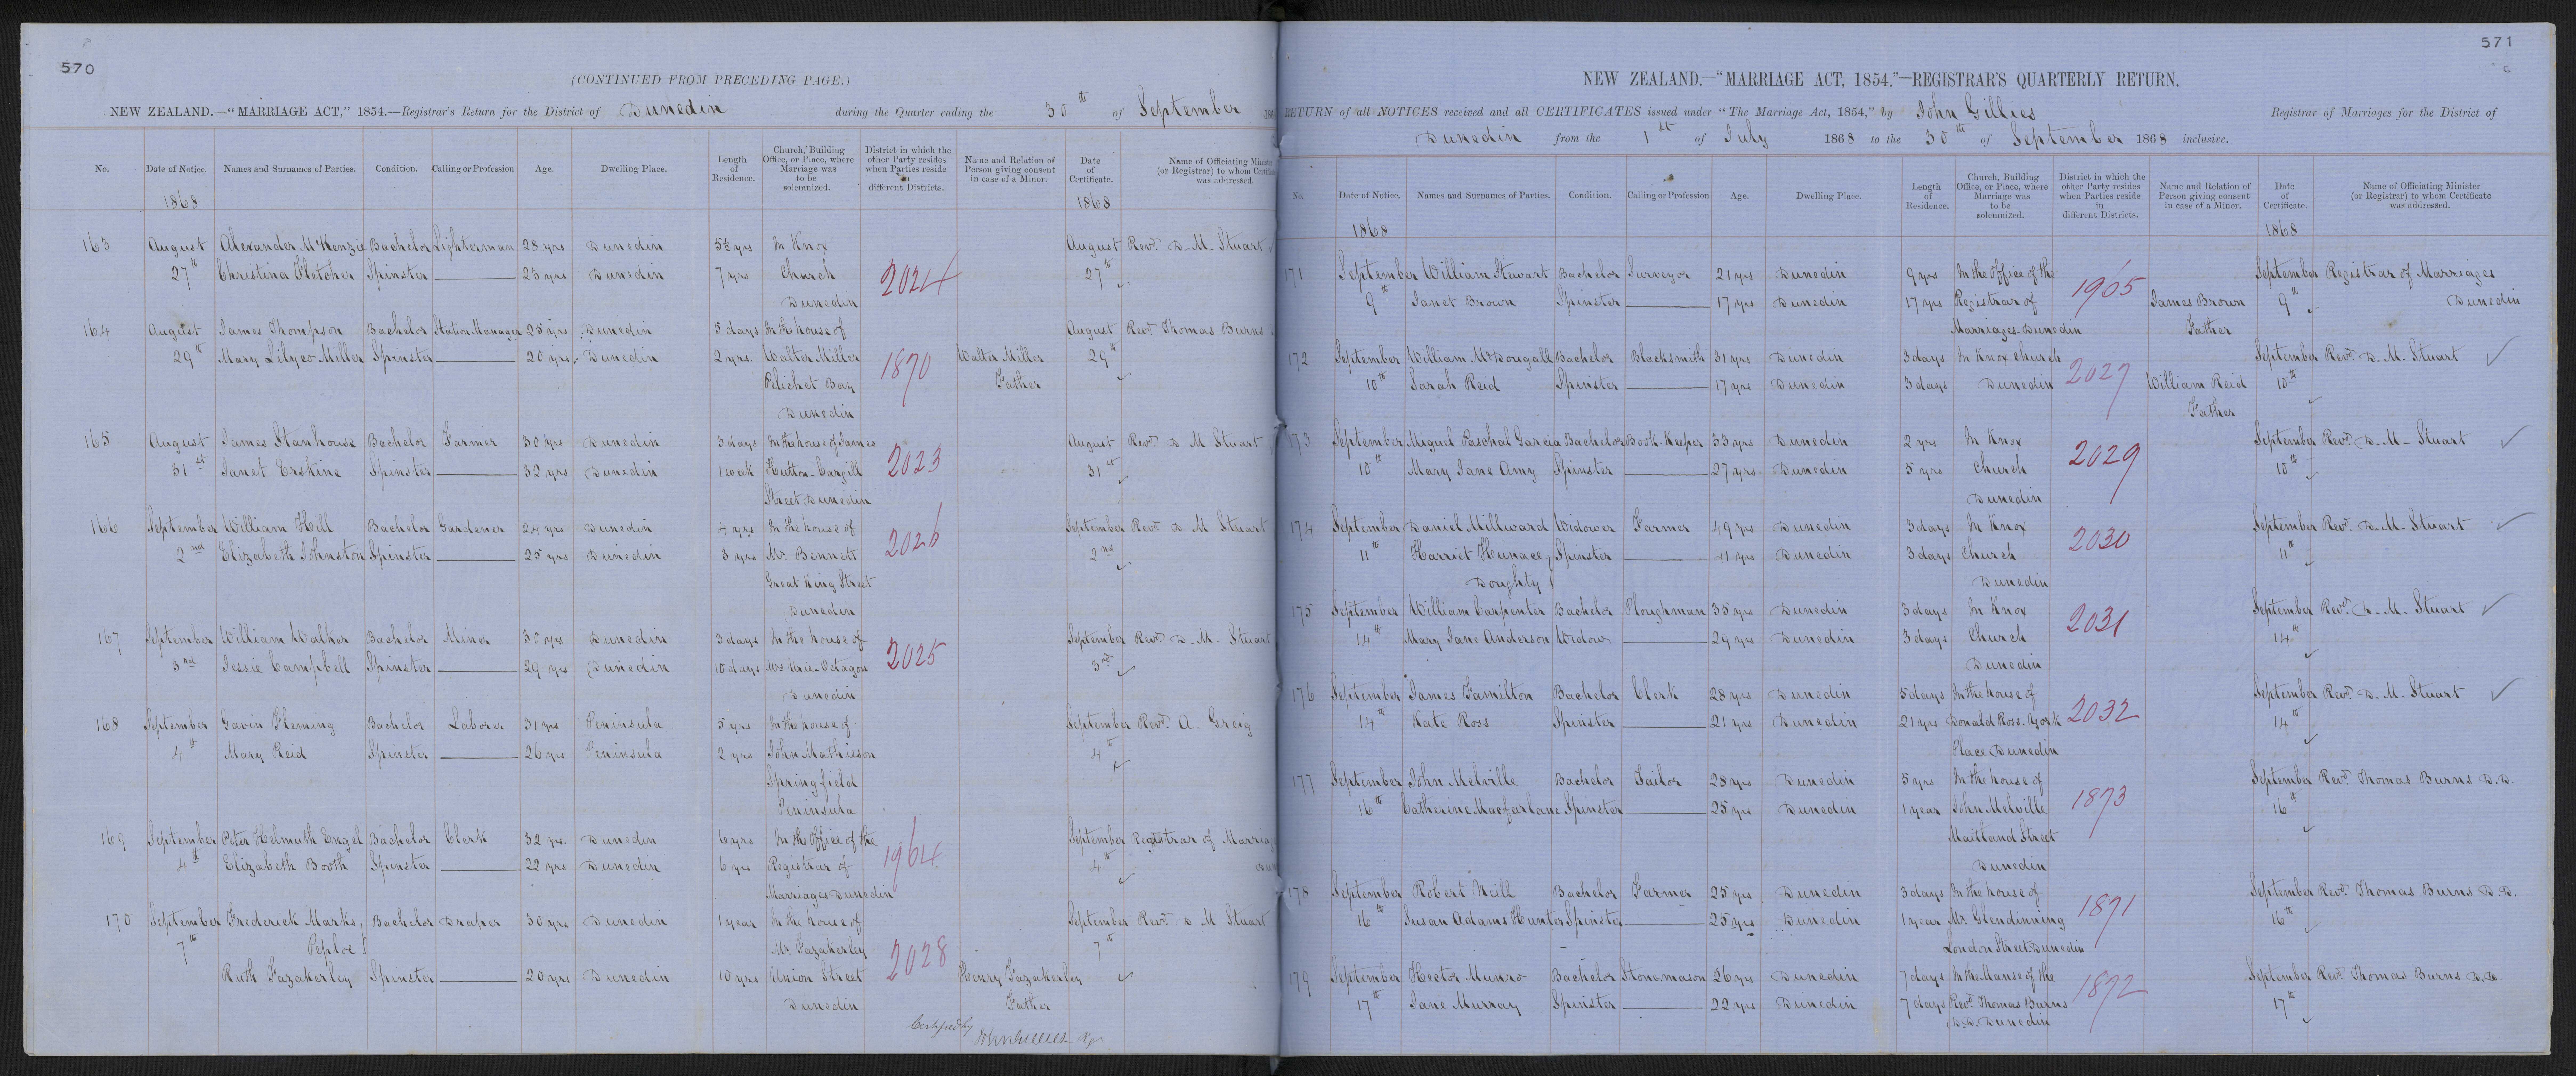 570
(CONTINUED FROM PRECEDING PAGE.)
NEW ZEALAND.—"MARRIAGE ACT," 1854.—Registrar's Return for the District of Dunedin during the Quarter ending the 30th of September 186
No. Date of Notice. Names and Surnames of Parties. Condition. Calling or Profession Age. Dwelling Place. Length of Residence. Church, Building Office, or Place, where Marriage was to be solemnized. District in which the other Party resides when Parties reside in different Districts. Name and Relation of Person giving consent in case of a Minor. Date of Certificate. Name of Officiating Minister (or Registrar) to whom Certificate was addressed.
1868 1868
163 August Alexander McKenzie Bachelor Lighterman 28 yrs Dunedin 5½ yrs In Knox August Revd. D. M. Stuart
27th Christina Fletcher Spinster 23 yrs Dunedin 7 yrs Church 2024 27th
Dunedin
164 August James Thompson Bachelor Station Manager 25 yrs Dunedin 5 days In the house of August Revd. Thomas Burns
29th Mary Lilyco Miller Spinster 20 yrs. Dunedin 2 yrs. Walter Miller 1870 Walter Miller 29th
Pelichet Bay Father
Dunedin
165 August James Stanhouse Bachelor Farmer 30 yrs Dunedin 3 days In the house of James August Revd. D M Stuart
31st Janet Erskine Spinster 32 yrs Dunedin 1 week Hutton-Cargill 2023 31st
Street Dunedin
166 September William Hill Bachelor Gardener 24 yrs Dunedin 4 yrs In the house of September Revd. D M Stuart
2nd Elizabeth Johnston Spinster 25 yrs Dunedin 3 yrs Mr. Bennett 2026 2nd
Great King Street
Dunedin
167 September William Walker Bachelor Miner 30 yrs Dunedin 3 days In the house of September Revd. D. M. Stuart
3rd Jessie Campbell Spinster 29 yrs Dunedin 10 days Octagon 2025 3rd
Dunedin
168 September Gavin Fleming Bachelor Laborer 31 yrs Peninsula 5 yrs In the house of September Revd. A. Greig
4th Mary Reid Spinster 26 yrs Peninsula 2 yrs John Mathieson 4th
Springfield
Peninsula
169 September Peter Helmuth Engel Bachelor Clerk 32 yrs. Dunedin 6 yrs In the Office of the September Registrar of Marria
4th Elizabeth Booth Spinster 22 yrs Dunedin 6 yrs Registrar of 1964 4th Du
Marriages Dunedin
170 September Frederick Marks Bachelor Draper 30 yrs Dunedin 1 year In the house of September Revd. D M Stuart
7th Peploe Mr. Fazakerley 2028 7th
Ruth Fazakerley Spinster 20 yrs Dunedin 10 yrs Union Street Henry Fazakerley
Dunedin Father
Certified by John Gillies Rgr
571
NEW ZEALAND.—"MARRIAGE ACT, 1854."—REGISTRAR'S QUARTERLY RETURN.
RETURN of all NOTICES received and all CERTIFICATES issued under "The Marriage Act, 1854," by John Gillies Registrar of Marriages for the District of
Dunedin from the 1st of July 1868 to the 30th of September 1868 inclusive.
No. Date of Notice. Names and Surnames of Parties. Condition. Calling or Profession Age. Dwelling Place. Length of Residence. Church, Building Office, or Place, where Marriage was to be solemnized. District in which the other Party resides when Parties reside in different Districts. Name and Relation of Person giving consent in case of a Minor. Date of Certificate. Name of Officiating Minister (or Registrar) to whom Certificate was addressed.
1868 1868
171 September William Stewart Bachelor Surveyor 21 yrs Dunedin 9 yrs In the Office of the September Registrar of Marriages
9th Janet Brown Spinster 17 yrs Dunedin 17 yrs Registrar of 1965 James Brown 9th Dunedin
Marriages Dunedin Father
172 September William McDougall Bachelor Blacksmith 31 yrs Dunedin 3 days In Knox Church September Revd. D. M. Stuart
10th Sarah Reid Spinster 17 yrs Dunedin 3 days Dunedin 2027 William Reid 10th
Father
173 September Miguel Paschal Garcia Bachelor Book-Keeper 33 yrs Dunedin 2 yrs In Knox September Revd. D. M. Stuart
10th Mary Jane Amy Spinster 27 yrs Dunedin 5 yrs Church 2029 10th
Dunedin
174 September Daniel Millward Widower Farmer 49 yrs Dunedin 3 days In Knox September Revd. D. M. Stuart
11th Harriet Spinster 41 yrs Dunedin 3 days Church 2030 11th
Doughty Dunedin
175 September William Carpenter Bachelor Ploughman 35 yrs Dunedin 3 days In Knox September Revd. D. M. Stuart
14th Mary Jane Anderson Widow 29 yrs Dunedin 3 days Church 2031 14th
Dunedin
176 September James Familton Bachelor Clerk 28 yrs Dunedin 5 days In the house of September Revd. D. M. Stuart
14th Kate Ross Spinster 21 yrs Dunedin 21 yrs Donald Ross. York 2032 14th
Place Dunedin
177 September John Melville Bachelor Tailor 28 yrs Dunedin 5 yrs In the house of September Revd. Thomas Burns D.D.
16th Catherine Macfarlane Spinster 25 yrs Dunedin 1 year John Melville 1873 16th
Maitland Street
Dunedin
178 September Robert Neill Bachelor Farmer 25 yrs Dunedin 3 days In the house of September Revd. Thomas Burns D.D.
16th Susan Adams Hunter Spinster 25 yrs Dunedin 1 year Mr. Glendinning 1871 16th
London Street Dunedin
179 September Hector Munro Bachelor Stonemason 26 yrs Dunedin 7 days In the Manse of the September Revd. Thomas Burns D.D.
17th Jane Murray Spinster 22 yrs Dunedin 7 days Revd. Thomas Burns 1872 17th
D.D. Dunedin